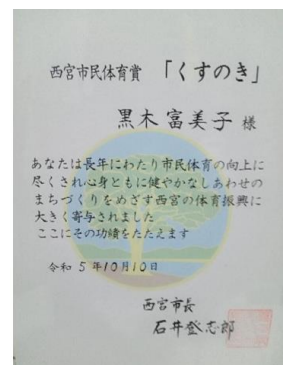 西宮市民体育賞 「くすのき」
黒木富美子 様
あなたは長年にわたり市民体育の向上に
尽くされ心身ともに健やかなしあわせの
まちづくりをめざす西宮の体育振興に
大きく寄与されました
ここにその功績をたたえます
令和5年10月10日
西宮市長
石井登志郎